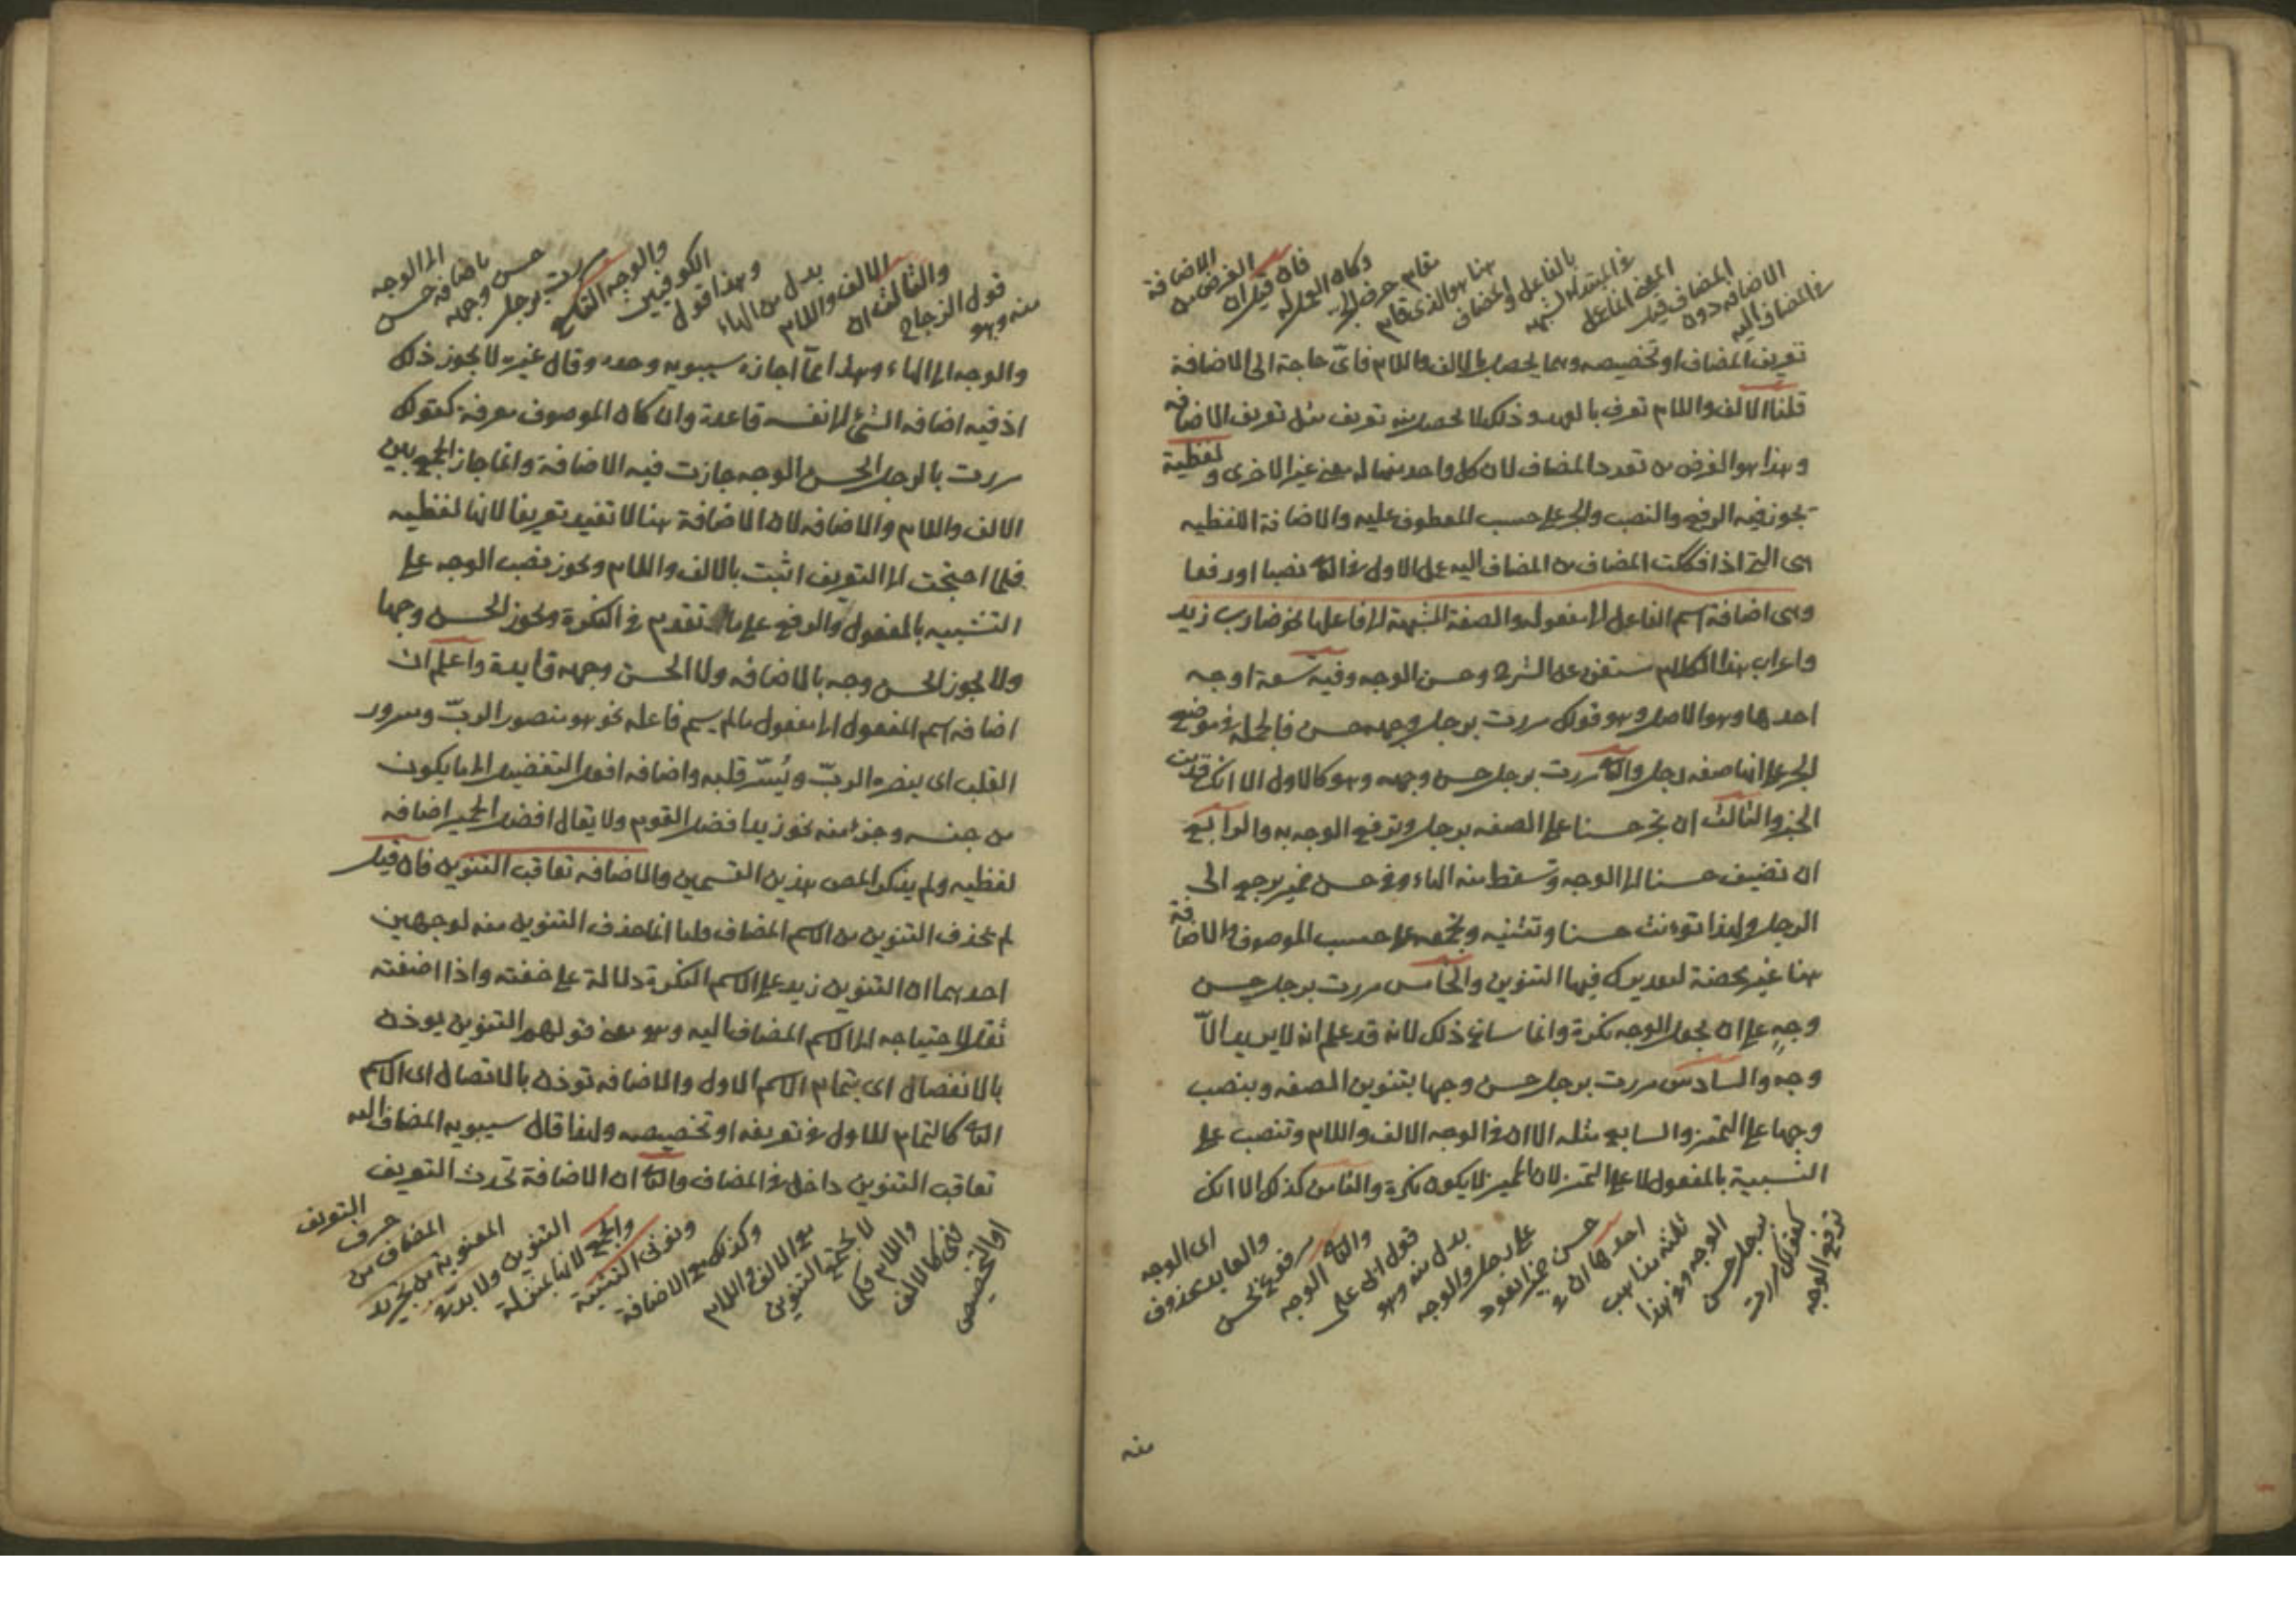 في المضاف اليه
الاضافة دون
المضاف قيل
المعنى الفاعل
في المبتداء لشبهه
بالفاعل والمضاف
هنا هو الذي قام
مقام حرف الجر
وكان العمل له
فان قيل ان
الغرض من
الاضافة
تعريف المضاف او تخصيصه وهما يحصل بالالف واللام فاى حاجة الى الاضافة
قلنا الالف واللام تعرف بالعهد وذلك لا يحصل منه تعريف مثل تعريف الاضافة
وهذا هو الغرض من تعدد المضاف لان كل واحد منهما له معنى غير الاخرى ولفظية
يجوز فيه الرفع والنصب والجر على حسب المعطوف عليه والاضافة اللفظيه
هى التى اذا فككت المضاف من المضاف اليه عمل الاول في الثانى نصبا او رفعا
وهى اضافة اسم الفاعل الى مفعوله والصفة المشبهة الى فاعلها نحو ضارب زيد
واعراب هذا الكلام مستغن عن الشرح وحسن الوجه وفيه تسعة اوجه
احدها وهو الاصل وهو قولك مررت برجل وجهه حسن فالجملة في موضع
الجر على انها صفه رجل والثانى مررت برجل حسن وجهه وهو كالاول الا انك قدمت
الخبر والثالث ان تجر حسنا على الصفه برجل وترفع الوجه به والرابع
ان تضيف حسنا الى الوجه وتسقط منه الهاء وفي حسن ضمير يرجع الى
الرجل ولهذا تؤنث حسنا وتثنيه وتجمعه على حسب الموصوف والاضافة
هنا غير محضة لتقديرك فيها التنوين والخامس مررت برجل حسن
وجهٍ على ان تجعل الوجه نكرة وانما ساغ ذلك لانه قد علم انه لا يريد الّا
وجهه والسادس مررت برجل حسن وجها بتنوين الصفه وبنصب
وجها على التميز والسابع مثله الا ان في الوجه الالف واللام وتنصب على
التشبية بالمفعول لا على التميز لان المميز لا يكون نكرة والثامن كذلك الا انك
ترفع الوجه
كقولك مررت
برجل حسن
الوجه وفي هذا
ثلثه مذاهب
احدها ان في
حسن ضمير يعود
على رجل والوجه
بدل منه وهو
قول ابى على
والثانى الوجه
مرفوع بحسن
والعايد محذوف
اى الوجه
منه
منه وهو
قول الزجاج
والثالث ان
الالف واللام
بدل من الهاء
وهذا قول
الكوفيين
والوجه التاسع
مررت برجل
حسن وجهه
باضافة حسن
الى الوجه
والوجه الى الهاء وهذا انما اجازه سيبويه وحده وقال غيره لا يجوز ذلك
اذ فيه اضافه الشئ الى نفسه قاعدة وان كان الموصوف معرفة كقولك
مررت بالرجل الحسن الوجه جازت فيه الاضافة وانما جاز الجمع بين
الالف واللام والاضافه لان الاضافة هنا لا تفيد تعريفا لانها لفظيه
فلما احتجت الى التعريف اثبت بالالف واللام ويجوز نصب الوجه على
التشبيه بالمفعول والرفع على ما تقدم في النكرة ويجوز الحسن وجها
ولا يجوز الحسن وجه بالاضافه ولا الحسن وجهه فايدة واعلم ان
اضافه اسم المفعول الى مفعول مالم يسم فاعله نحو هو منصور الربّ ومسرور
القلب اى ينصره الربّ ويُسّر قلبه واضافه افعل التفضيل الى ما يكون
من جنسه وجزء منه نحو زيد افضل القوم ولا يقال افضل الحمير اضافه
لفظيه ولم يذكر المص هذين القسمين والاضافه تعاقب التنوين فان قيل
لم يحذف التنوين من الاسم المضاف قلنا انما حذف التنوين منه لوجهين
احدهما ان التنوين زيد على الاسم النكرة دلالة على خفته واذا اضفته
ثقل لاحتياجه الى الاسم المضاف اليه وهو معنى قولهم التنوين يوذن
بالانفصال اى بتمام الاسم الاول والاضافه توذن بالاتصال اى الاسم
الثانى كالتمام للاول في تعريفه او تخصيصه ولهذا قال سيبويه المضاف اليه
تعاقب التنوين داخل في المضاف والثانى ان الاضافة تحدث التعريف
او التخصيص
فهى كالالف
واللام فكما
لا يجتمع التنوين
مع الالف واللام
وكذلك مع الاضافة
ونونى التثنية
والجمع لانها بمنزلة
التنوين ولا بد في
المعنوية من تجريد
المضاف من
حرف
التعريف